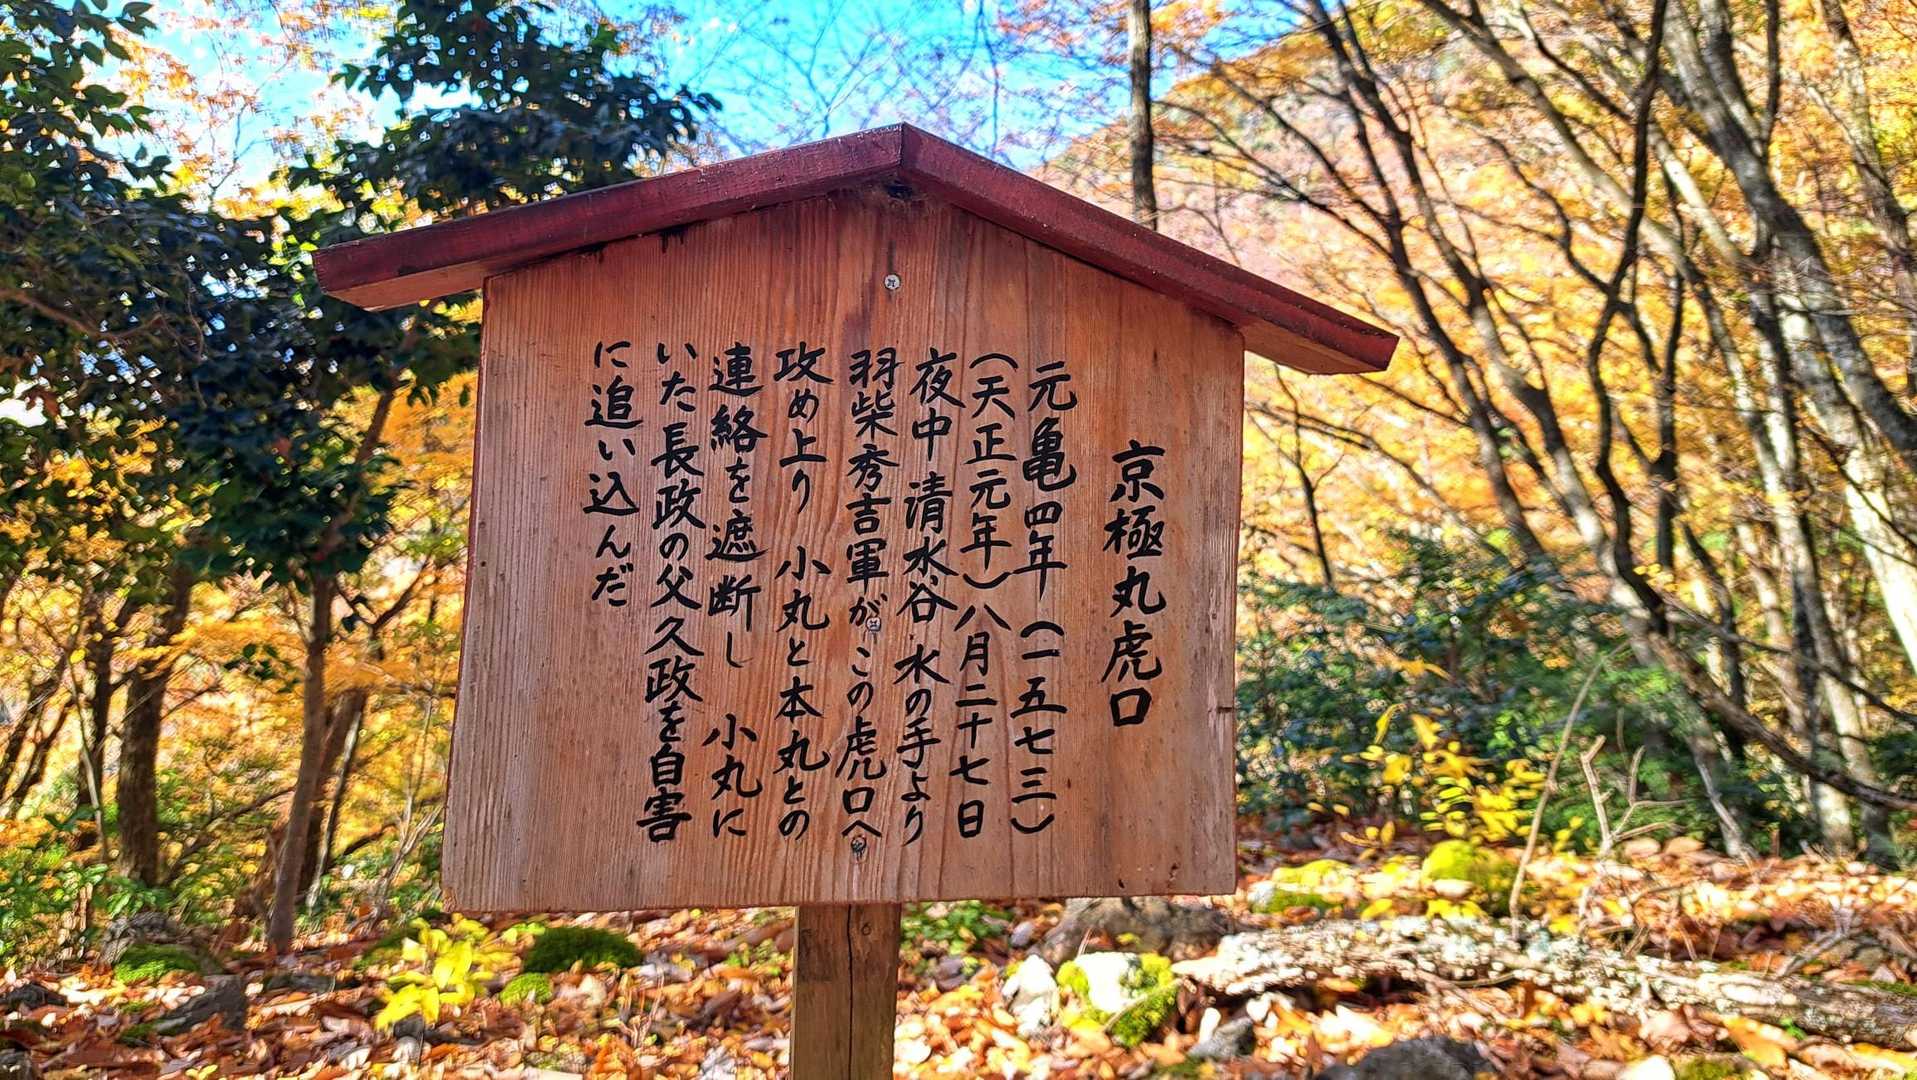 京極丸虎口
元亀四年(一五七三)
(天正元年)八月二十七日
夜中 清水谷・水の手より
羽柴秀吉軍がこの虎口へ
攻め上り 小丸と本丸との
連絡を遮断し 小丸に
いた長政の父久政を自害
に追い込んだ